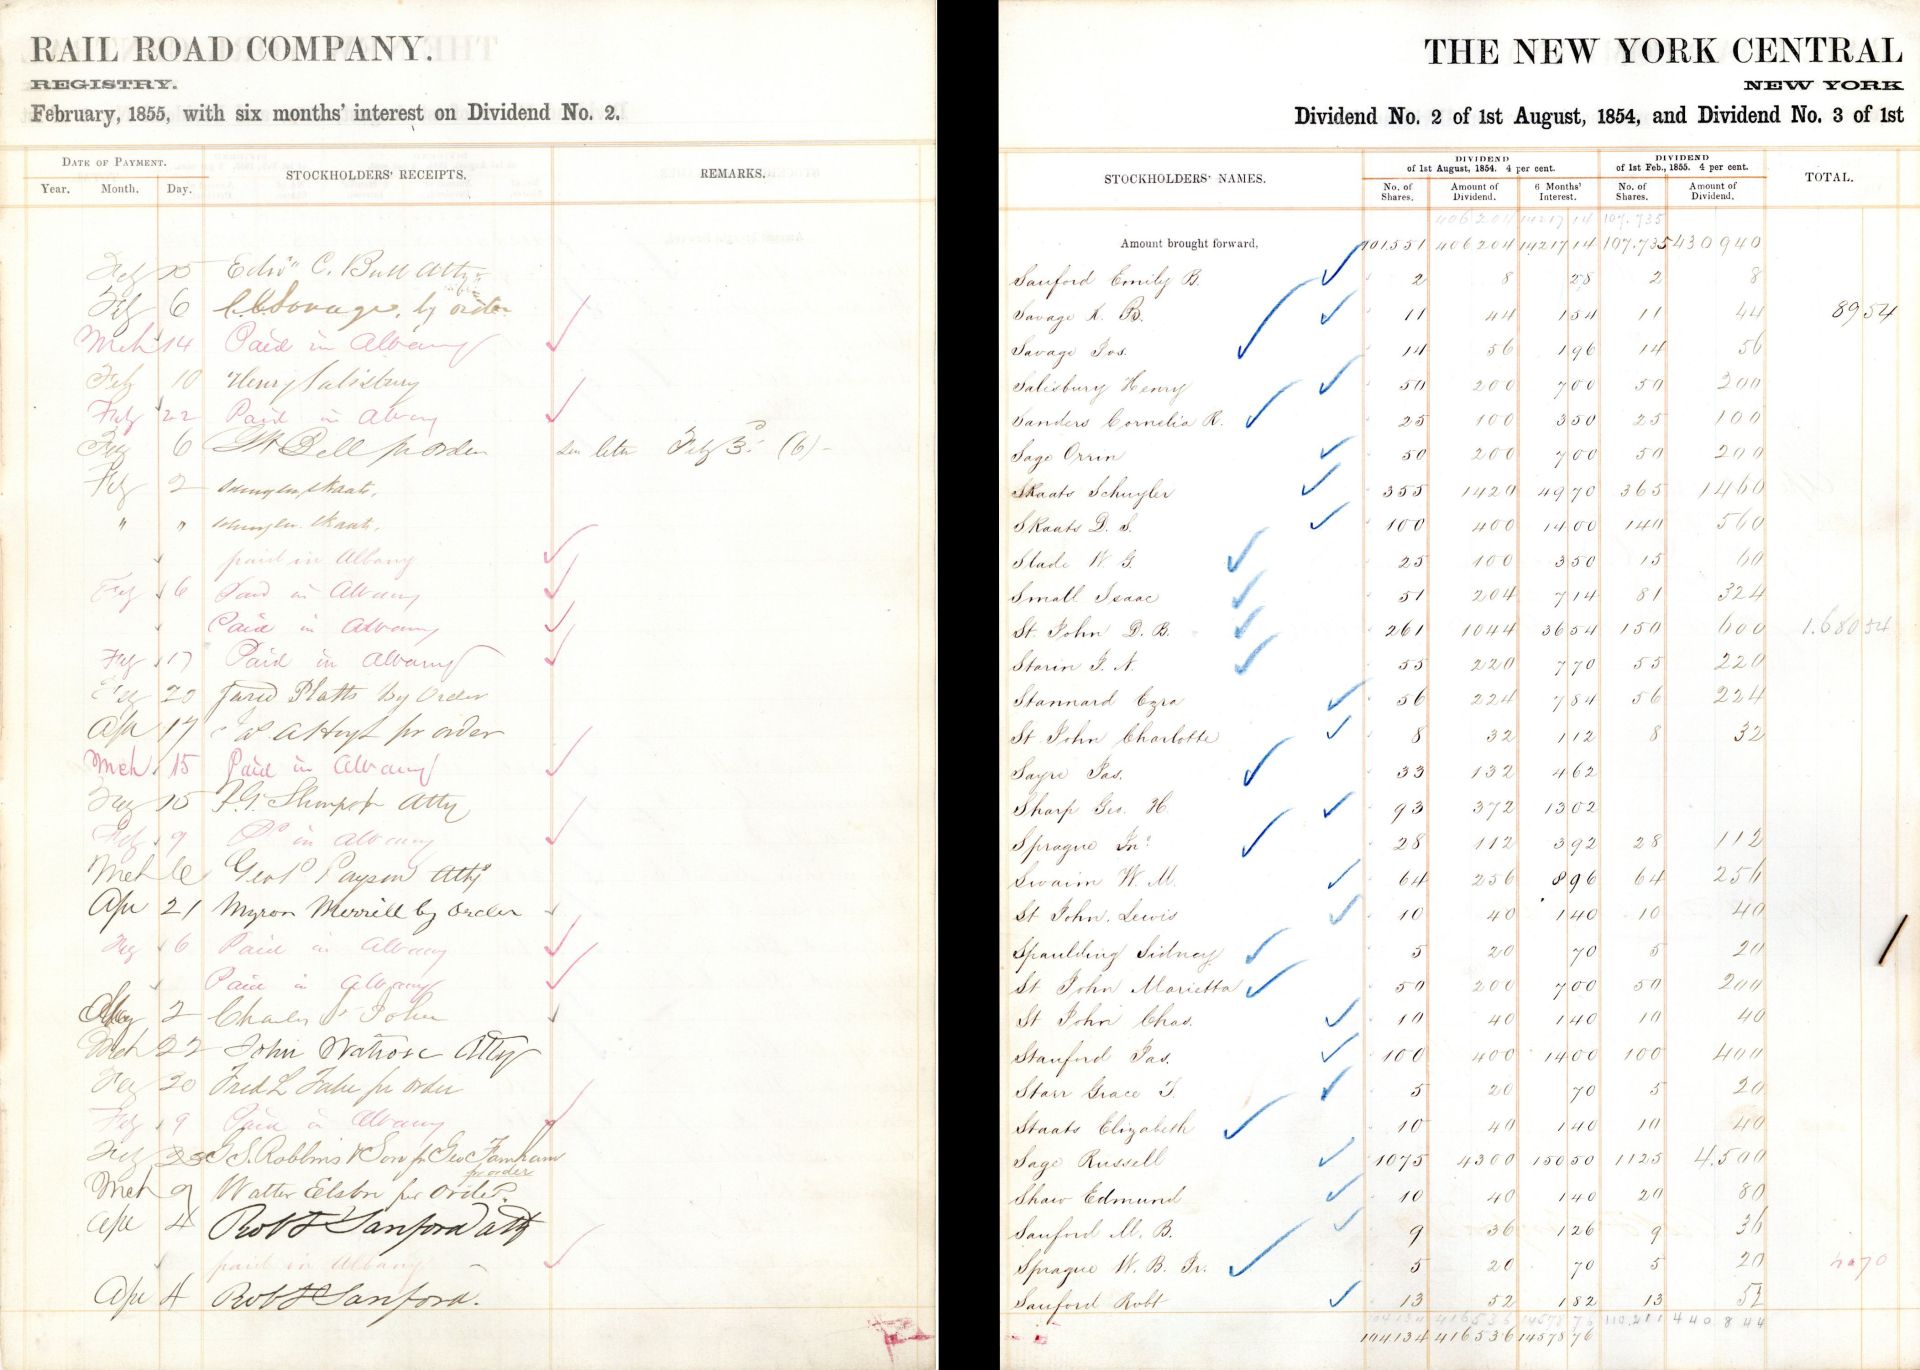 RAIL ROAD COMPANY.
REGISTRY.
February, 1855, with six months' interest on Dividend No. 2.
DATE OF PAYMENT.
Year. Month. Day. STOCKHOLDERS' RECEIPTS. REMARKS.
Feb 15 Edwd C. Bull Atty
Feb 6 Savage, by order
Mch 14 Paid in Albany
Feb 10 Henry Salisbury
Feb 22 Paid in Albany
Feb 6 Bell pr order see letter Feb 3d (6)
Feb 2 Schuyler Skaats.
" " Schuyler Skaats.
paid in Albany
Feb 6 Paid in Albany
Paid in Albany
Feb 17 Paid in Albany
Feb 20 Jared Platts by Order
Apr 17 A Hoyt pr order
Mch 15 Paid in Albany
Feb 15 Atty
Feb 9 Do in Albany
Mch 6 Geo P Payson Atty
Apr 21 Myron Merrill by Order
Feb 6 Paid in Albany
Paid in Albany
May 2 Charles St John
Mch 22 John Watrose Atty
Feb 20 Fred L pr order
Feb 9 Paid in Albany
Feb 23 G S. Robbins & Son pr Geo Farnham
pr order
Mch 9 Walter Elston per order.
Apr 4 Robt Sanford atty
paid in Albany
Apr 4 Robt Sanford.
THE NEW YORK CENTRAL
NEW YORK
Dividend No. 2 of 1st August, 1854, and Dividend No. 3 of 1st
STOCKHOLDERS' NAMES. DIVIDEND of 1st August, 1854. 4 per cent. DIVIDEND of 1st Feb., 1855. 4 per cent. TOTAL.
No. of Shares. Amount of Dividend. 6 Months' Interest. No. of Shares. Amount of Dividend.
406 204 14217 14 107.735
Amount brought forward, 101551 406204 14217 14 107.735 430940
Sanford Emily B. 2 8 28 2 8
Savage R. B. 11 44 154 11 44 8954
Savage Jos. 14 56 196 14 56
Salisbury Henry 50 200 700 50 200
Sanders Cornelia R. 25 100 350 25 100
Sage Orrin 50 200 700 50 200
Skaats Schuyler 355 1420 4970 365 1460
Skaats D. S. 100 400 1400 140 560
Slade W. G. 25 100 350 15 60
Small Isaac 51 204 714 81 324
St John D. B. 261 1044 3654 150 600 1.680 54
Starin J. N. 55 220 770 55 220
Stannard Ezra 56 224 784 56 224
St John Charlotte 8 32 112 8 32
Sayre Jas. 33 132 462
Sharp Geo. H. 93 372 1302
Sprague Jno 28 112 392 28 112
Swaim W. M. 64 256 896 64 256
St John, Lewis 10 40 140 10 40
Spaulding Sidney 5 20 70 5 20
St John Marietta 50 200 700 50 200
St John Chas. 10 40 140 10 40
Stanford Jas. 100 400 1400 100 400
Starr Grace T. 5 20 70 5 20
Staats Elizabeth 10 40 140 10 40
Sage Russell 1075 4300 15050 1125 4.500
Shaw Edmund 10 40 140 20 80
Sanford M. B. 9 36 126 9 36
Sprague W. B. Jr. 5 20 70 5 20
Sanford Robt 13 52 182 13 52
104134 416536 14578 76 110.211 440.844
104134 416536 14578 76